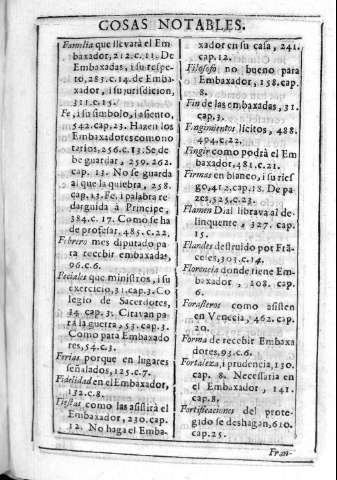 COSAS NOTABLES.
Familia que llevará el Em
baxador, 212. c. 11. De
Embaxadas, i su respe-
to, 283. c. 14. de Emba-
xador, i su jurisdicion,
311. c. 15.
Fe, i su simbolo, i asiento,
542. cap. 23. Hazen los
Embaxadores como no
tarios, 256. c. 13. Se de
be guardar, 259. 262.
cap. 13. No se guarda
al que la quiebra, 258.
cap. 13. Fe, i palabra re
darguida à Principe,
384. c. 17. Como se ha
de profesar, 485. c. 22.
Febrero mes diputado pa
ra recebir embaxadas,
96. c. 6.
Feciales que ministros, i su
exercicio, 31. cap. 3. Co
legio de Sacerdotes,
34. cap. 3. Citavan pa
rá la guerra, 53. cap. 3.
Como para Embaxado
res, 54. c. 3.
Ferias porque en lugares
señalados, 125. c. 7.
Fidelidad en el Embaxador,
152. c. 8.
Fiestas como las asistirà el
Embaxador, 230. cap.
12. No haga el Emba-
xador en su casa, 241.
cap. 12.
Filosofo no bueno para
Embaxador, 158. cap.
8.
Fin de las embaxadas, 31.
cap. 3.
Fingimientos licitos, 488.
494. c. 22.
Fingir como podrà el Em
baxador, 481. c. 21.
Firmas en blanco, i su ries
go, 412. cap. 18. De pa-
zes, 525. c. 23.
Flamen Dial librava al de-
linquente, 327. cap.
15.
Flandes destruido por Frā-
ceses, 303. c. 14.
Florencia donde tiene Em-
baxador, 208. cap.
6.
Forasteros como asisten
en Venecia, 462. cap.
20.
Forma de recebir Embaxa
dores, 93. c. 6.
Fortaleza, i prudencia, 130.
cap. 8. Necessaria en
el Embaxador, 141.
cap. 8.
Fortificaciones del prote-
gido se deshagan, 610.
cap. 25.
Fran-